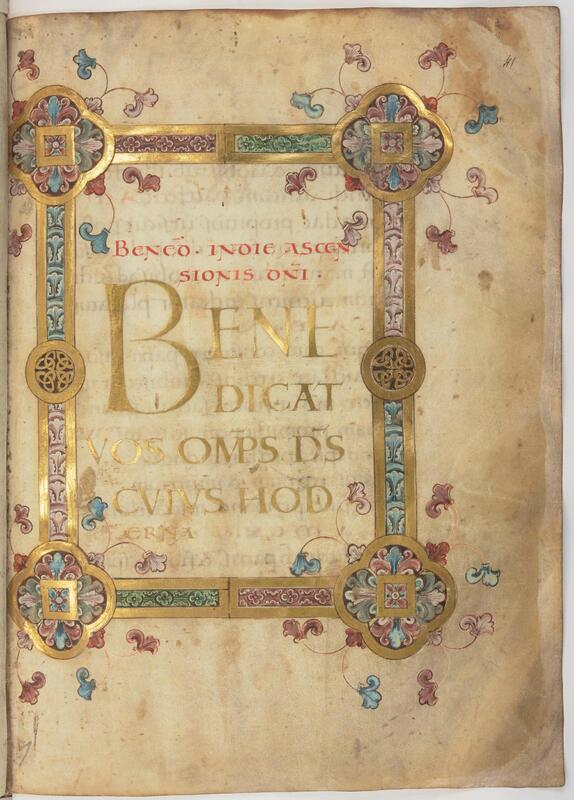 41
BENEDŌ · IN DIE ASCEN
SIONIS DN̄I ·
BENE
DICAT
VOS OMPS DS
CVIVS HOD
IERNA